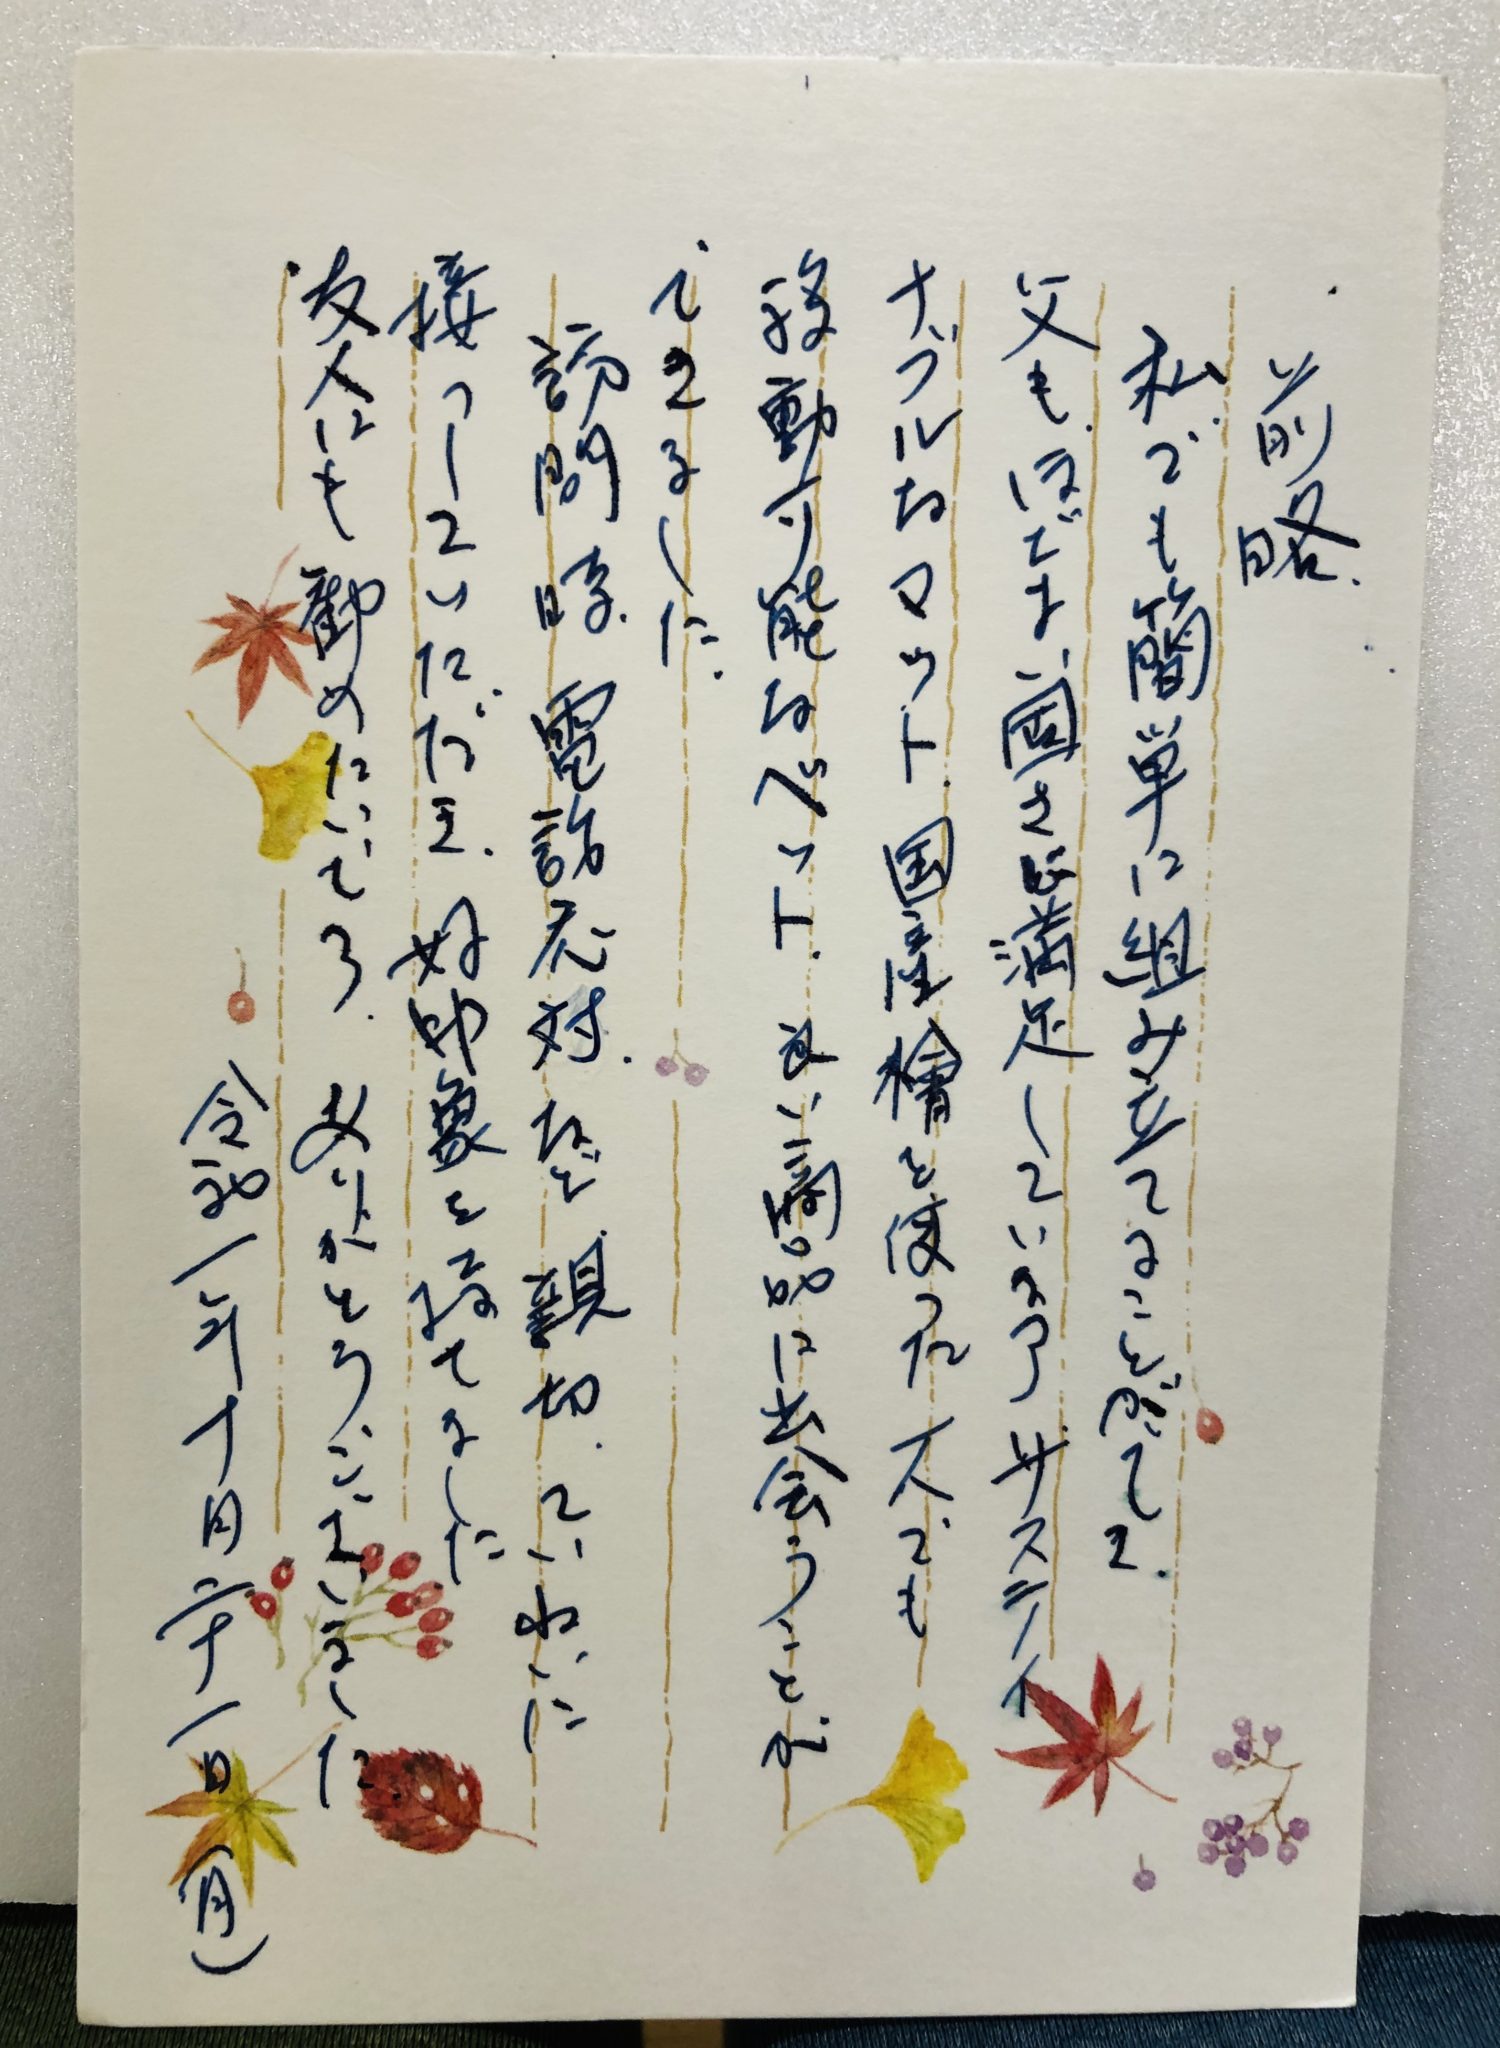 前略
私でも簡単に組み立てることができて、
父も、ほどよい固さに満足しています。サスティ
ナブルなマット、国産檜を使った一人でも
移動可能なベット、良い商品に出会うことが
できました。
訪問時、電話応対、など、親切、ていねいに
接っしていただき、好印象を持てました
友人にも勧めたいです。ありがとうございました
令和一年十月二十一日(月)